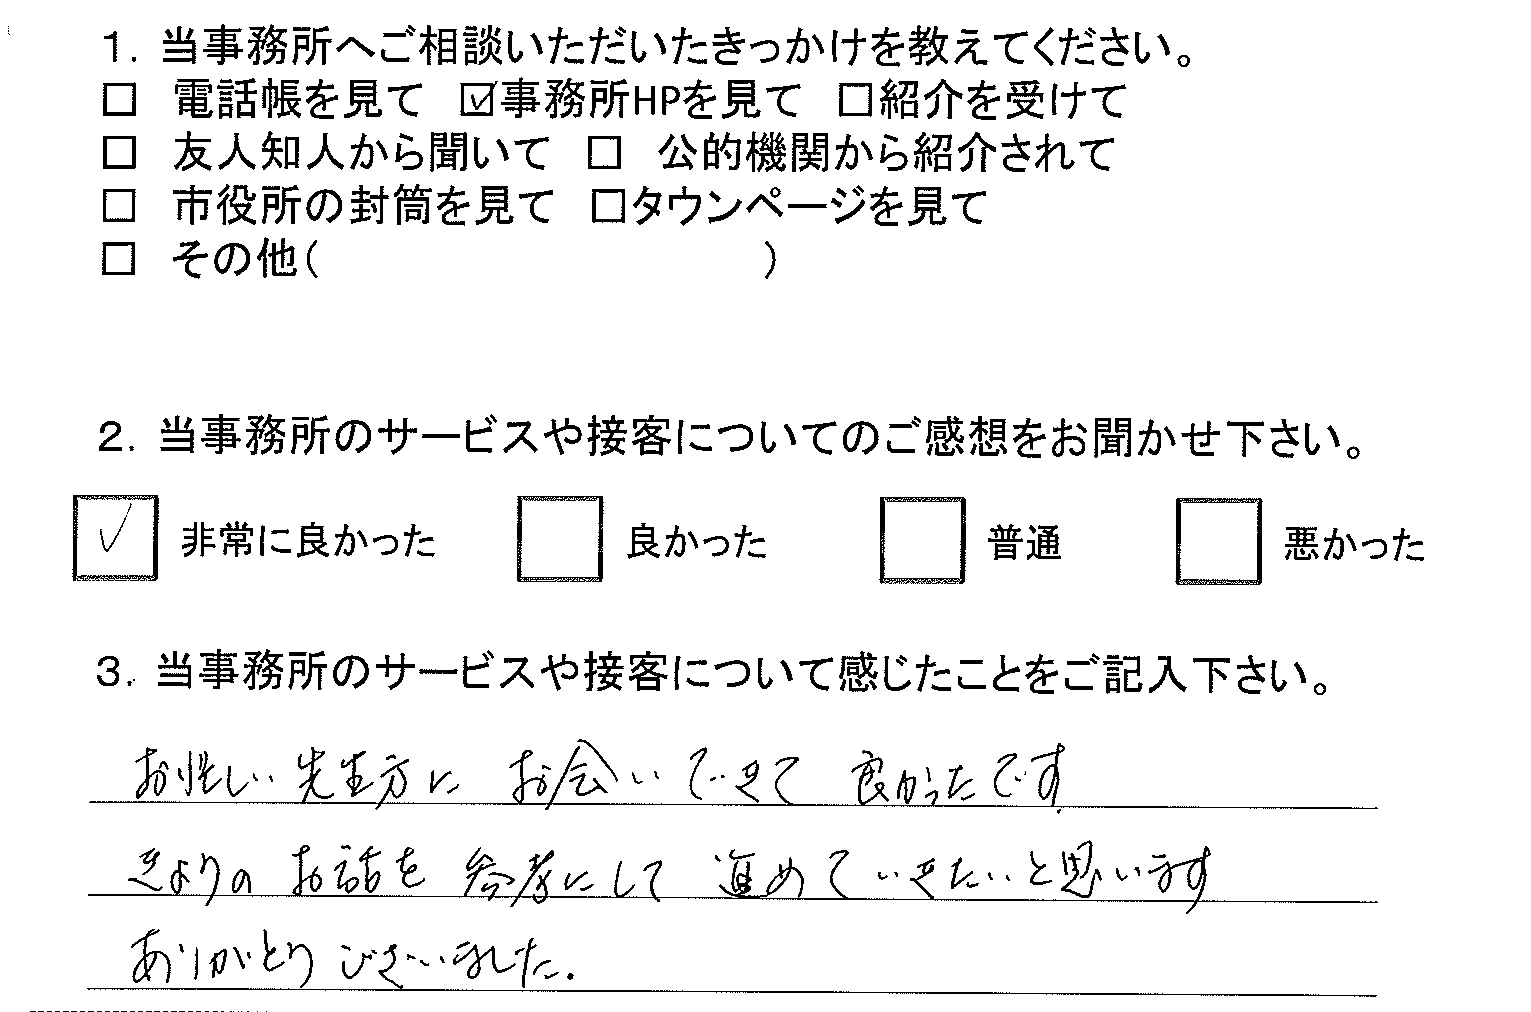 1. 当事務所へご相談いただいたきっかけを教えてください。
□ 電話帳を見て ☑事務所HPを見て □紹介を受けて
□ 友人知人から聞いて □ 公的機関から紹介されて
□ 市役所の封筒を見て □タウンページを見て
□ その他( )
2. 当事務所のサービスや接客についてのご感想をお聞かせ下さい。
☑ 非常に良かった □ 良かった □ 普通 □ 悪かった
3. 当事務所のサービスや接客について感じたことをご記入下さい。
お忙しい先生方に お会いできて 良かったです
きょうの お話を 参考にして 進めていきたいと思います
ありがとうございました.